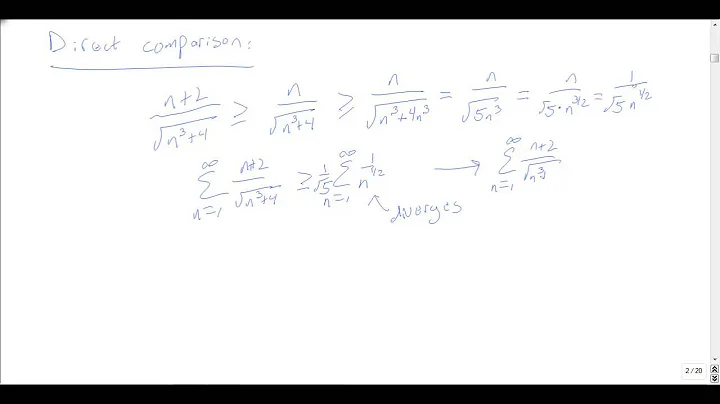 Direct comparison:
(n+2)/√(n³+4) ≥ n/√(n³+4) ≥ n/√(n³+4n³) = n/√(5n³) = n/(√5·n^(3/2)) = 1/(√5 n^(1/2))
∑_{n=1}^∞ (n+2)/√(n³+4) ≥ 1/√5 ∑_{n=1}^∞ 1/n^(1/2) → ∑_{n=1}^∞ (n+2)/√(n³
diverges
2 / 20